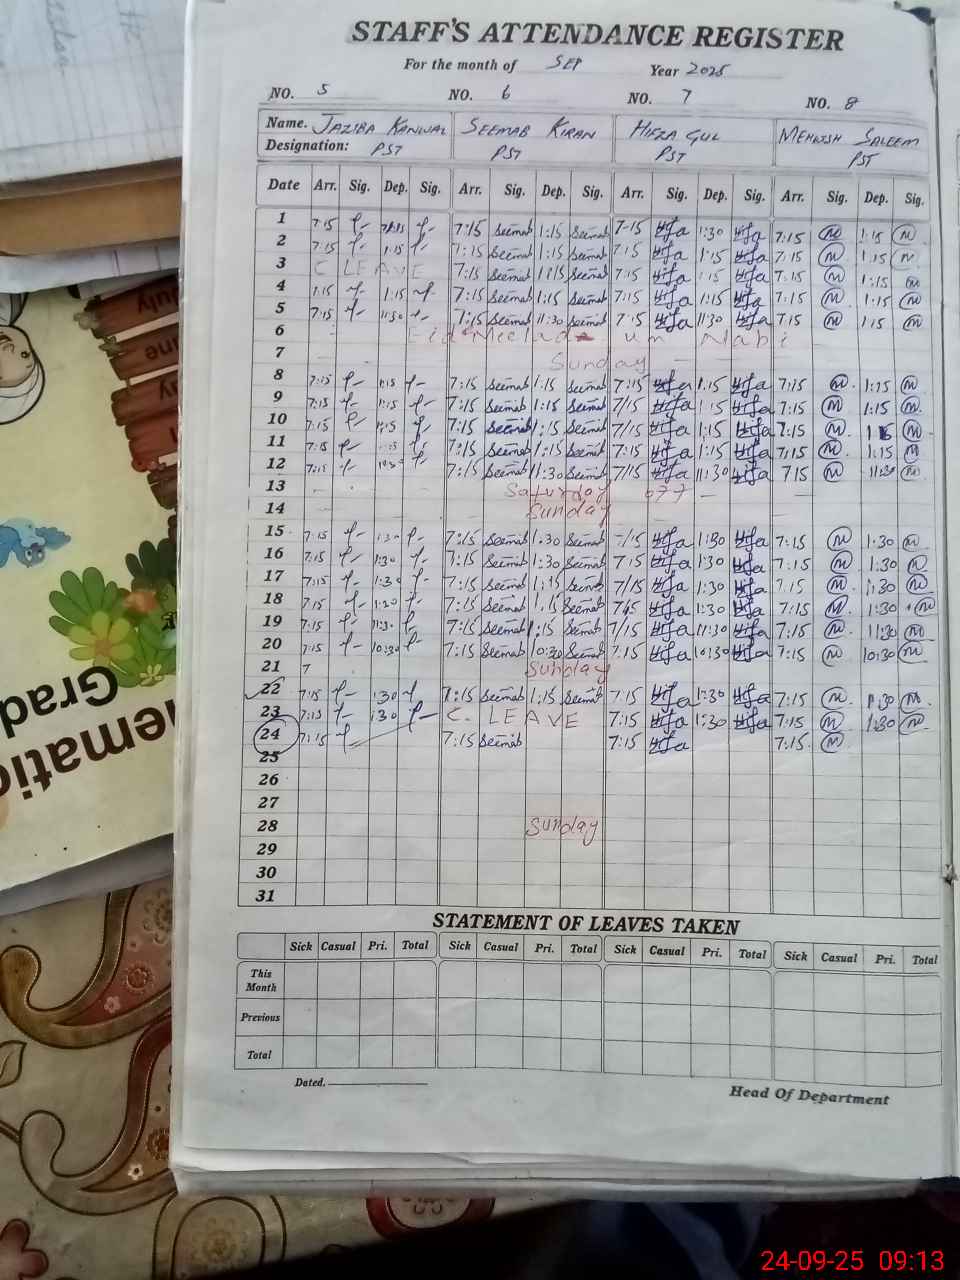 STAFF'S ATTENDANCE REGISTER
For the month of SEP Year 2025
NO. 5 NO. 6 NO. 7 NO. 8
Name. JAZIBA KANWAL SEEMAB KIRAN HIFZA GUL MEHWISH SALEEM
Designation: PST PST PST PST
Date Arr. Sig. Dep. Sig. Arr. Sig. Dep. Sig. Arr. Sig. Dep. Sig. Arr. Sig. Dep. Sig.
1 7:15 7:15 Seemab 1:15 Seemab 7:15 1:30 7:15 M 1:15 M
2 7:15 1:15 7:15 Seemab 1:15 Seemab 7:15 1:15 7:15 M 1:15 M
3 C LEAVE 7:15 Seemab 1:15 Seemab 7:15 1:15 7:15 M 1:15 M
4 1:15 1:15 7:15 Seemab 1:15 Seemab 7:15 1:15 7:15 M 1:15 M
5 7:15 11:30 7:15 Seemab 11:30 Seemab 7:15 11:30 7:15 M 1:15 M
6 Eid Meelad un Nabi
7 Sunday
8 7:15 1:15 7:15 Seemab 1:15 Seemab 7:15 1:15 7:15 M 1:15 M
9 7:15 1:15 7:15 Seemab 1:15 Seemab 7/15 1:15 7:15 M 1:15 M
10 7:15 1:15 7:15 Seemab 1:15 Seemab 7/15 1:15 7:15 M M
11 7:15 7:15 Seemab 1:15 Seemab 7/15 1:15 7:15 M 1:15 M
12 7:15 7:15 Seemab 11:30 Seemab 7/15 11:30 7:15 M 11:30 M
13 Saturday off
14 Sunday
15 7:15 1:30 7:15 Seemab 1:30 Seemab 7/15 1:30 7:15 M 1:30 M
16 7:15 1:30 7:15 Seemab 1:30 Seemab 7:15 1:30 7:15 M 1:30 M
17 7:15 1:30 7:15 Seemab 1:15 Seemab 7/15 1:30 7:15 M 1:30 M
18 7:15 1:30 7:15 Seemab 1:15 Seemab 7:15 1:30 7:15 M 1:30 M
19 7:15 11:30 7:15 Seemab 1:15 Seemab 7/15 11:30 7:15 M 11:30 M
20 7:15 10:30 7:15 Seemab 10:30 Seemab 7:15 10:30 7:15 M 10:30 M
21 7 Sunday
22 7:15 1:30 7:15 Seemab 1:15 Seemab 7:15 1:30 7:15 M 1:30 M
23 7:15 1:30 C. LEAVE 7:15 1:30 7:15 M 1:30 M
24 7:15 7:15 Seemab 7:15 7:15 M
25
26
27
28 Sunday
29
30
31
STATEMENT OF LEAVES TAKEN
Sick Casual Pri. Total Sick Casual Pri. Total Sick Casual Pri. Total Sick Casual Pri. Total
This
Month
Previous
Total
Dated.
Head Of Department
July
Grad
ematic
24-09-25 09:13